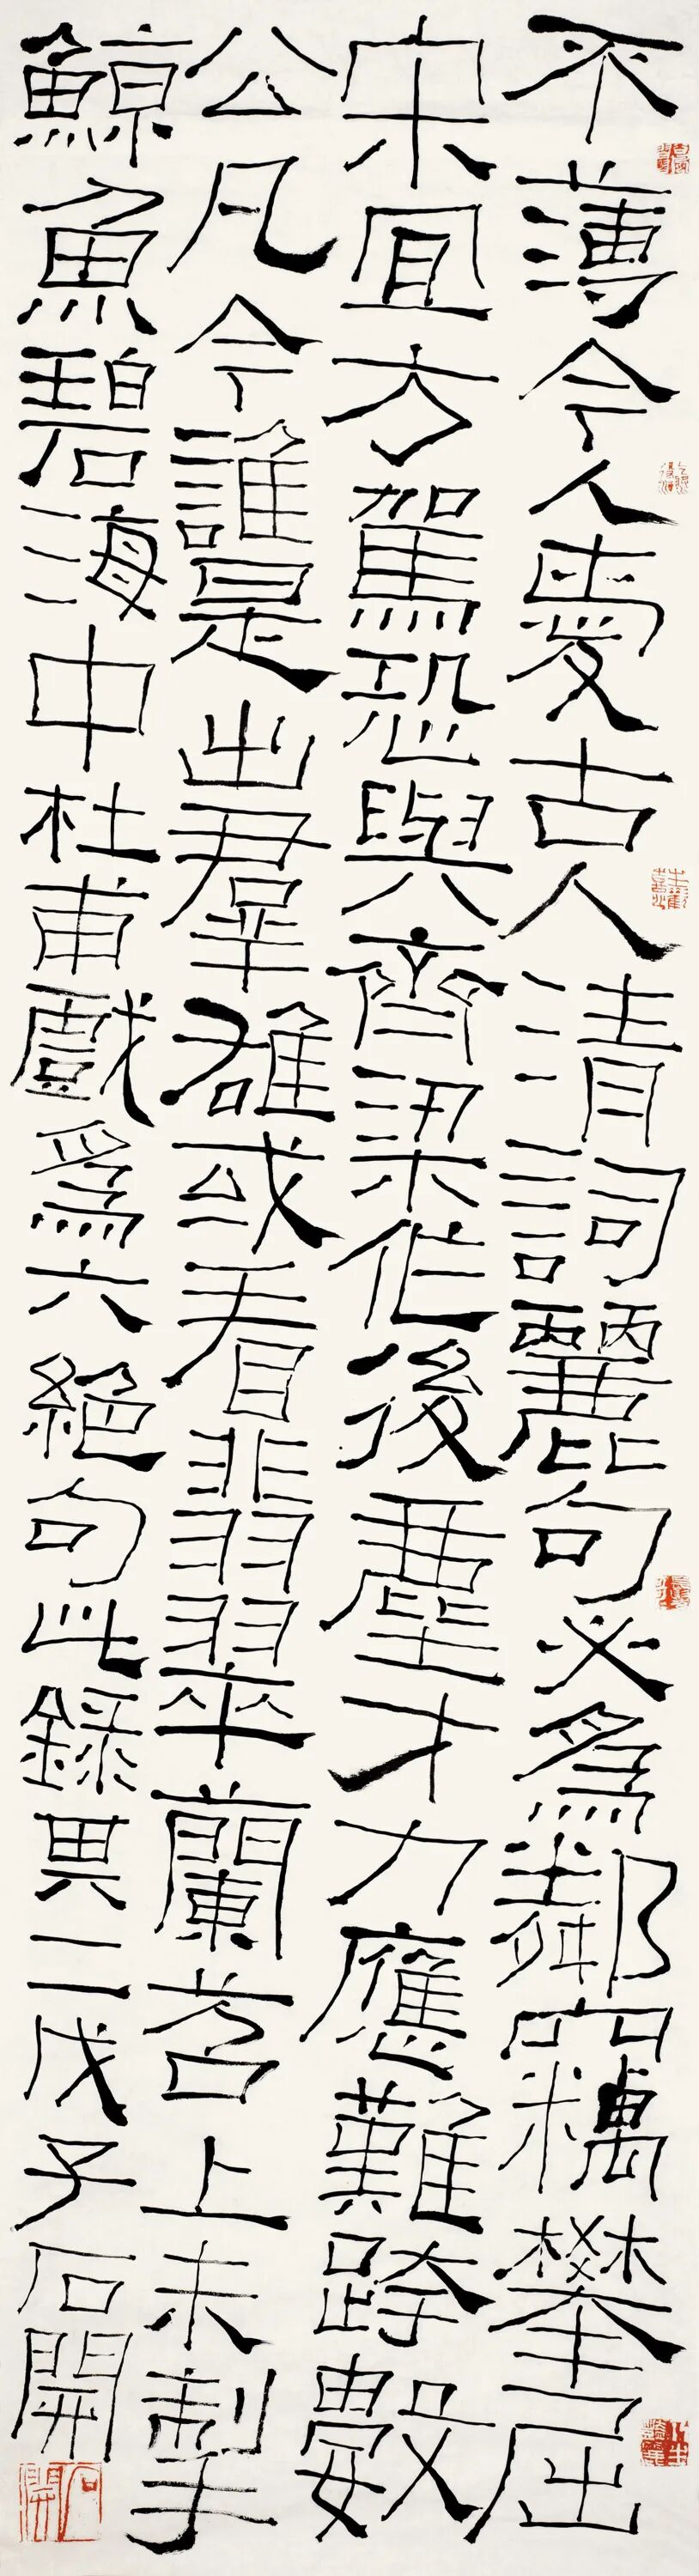 不薄今人愛古人清詞麗句必爲鄰竊攀屈
宋宜方駕恐與齊梁作後塵才力應難跨數
公凡今誰是出羣雄或看翡翠蘭苕上未掣
鯨魚碧海中杜甫戲爲六絕句此錄其二戊子石開
石開